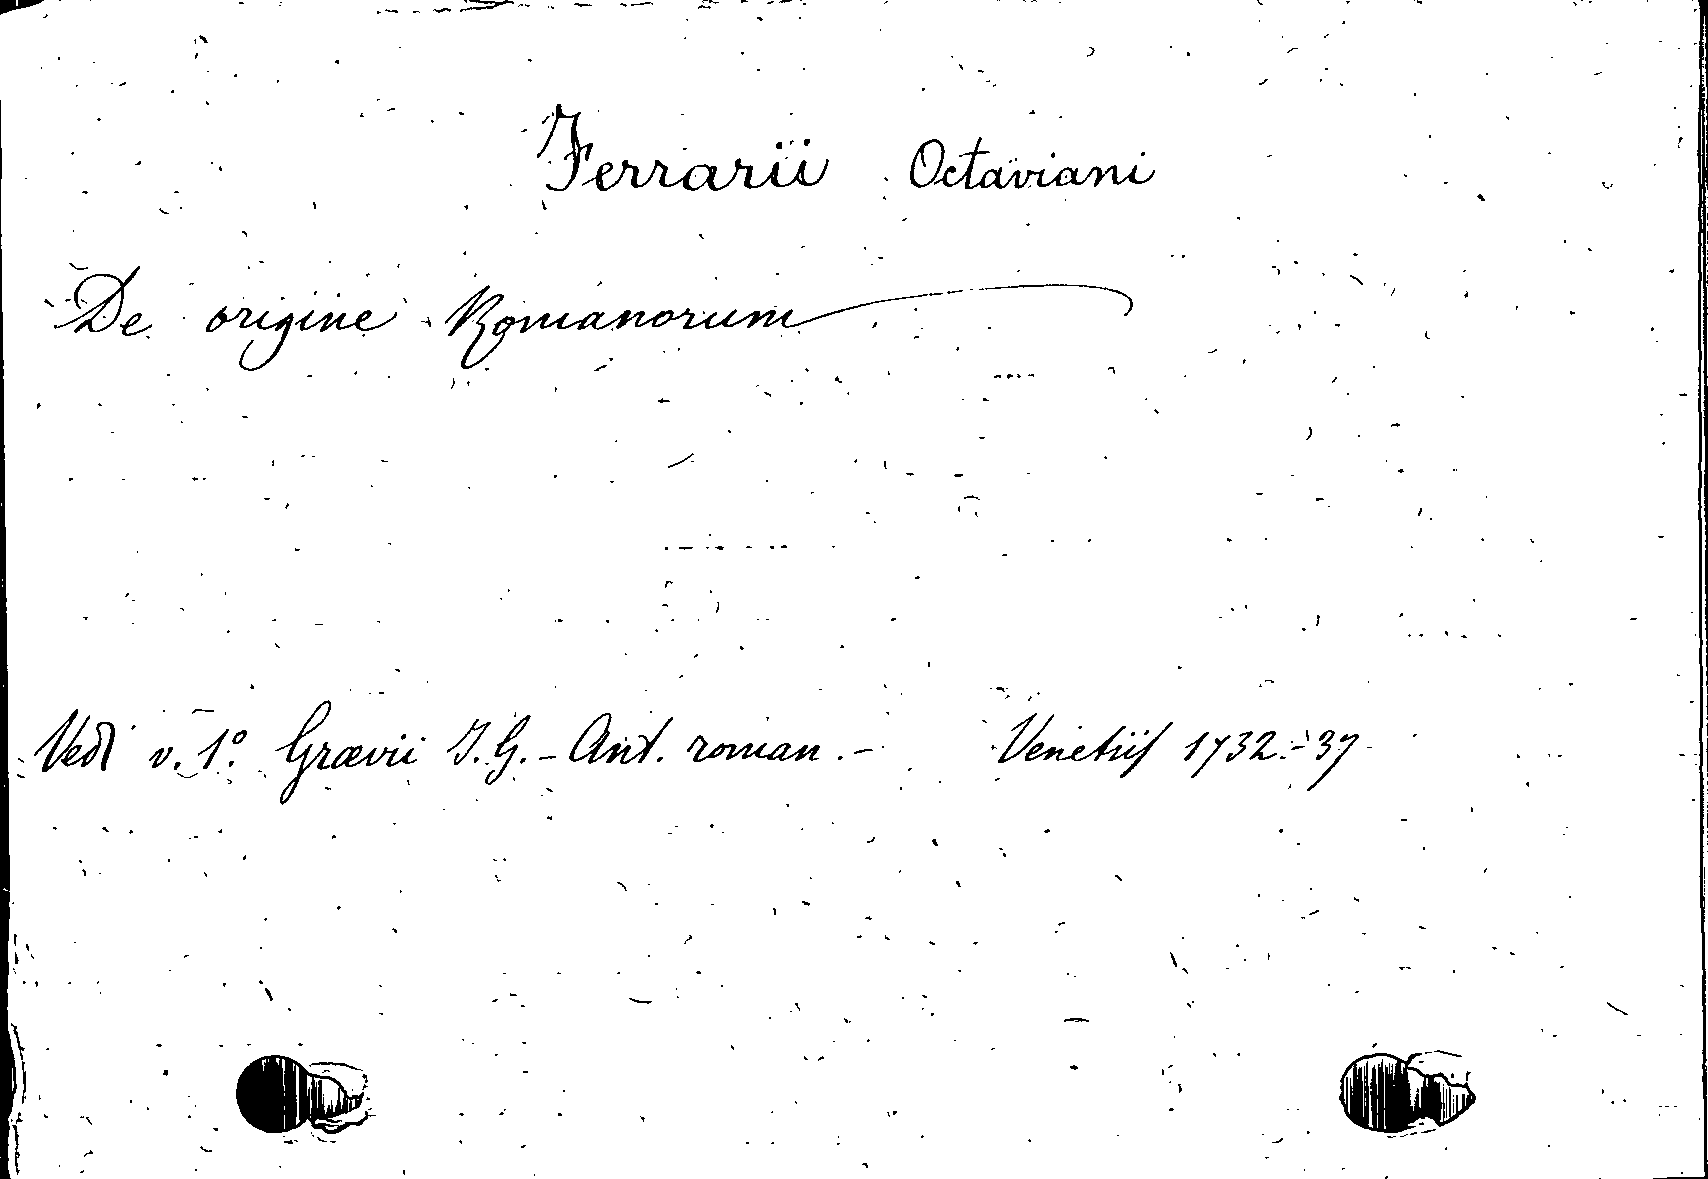 Ferrarii Octaviani
De origine Romanorum
Vedi v. 1º. Grævii J. G. - Ant. roman. - Venetiis 1732.-37